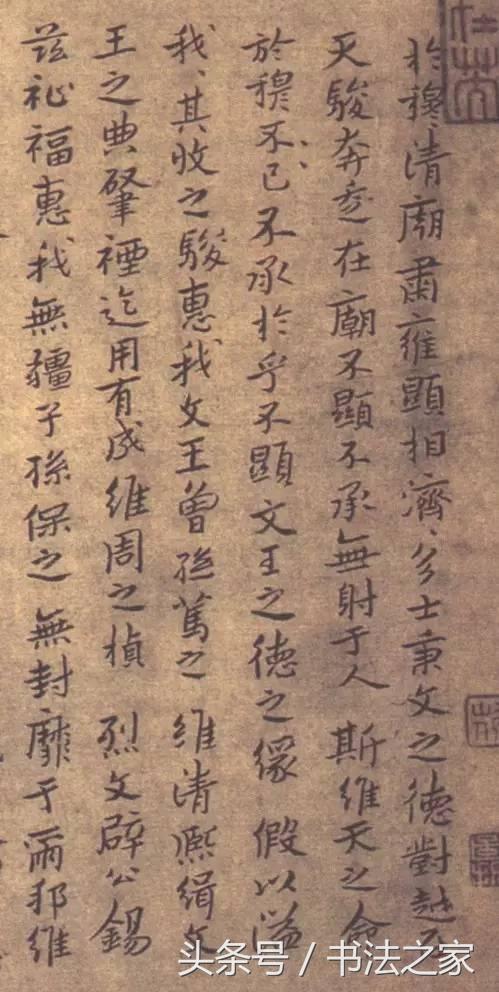 於穆、清廟肅、維顯相濟、多士秉文之德對越
天駿奔走在廟不顯不承無射于人 斯維天之命
於穆不已不承於乎不顯文王之德之緣 假以溢
我、其收之駿惠我文王曾孫篤之 維清熙緝文
王之典肇禋迄用有成維周之楨 烈文辟公錫
茲祉福惠我無疆子孫保之 無封靡于爾邦維
头条号 / 书法之家